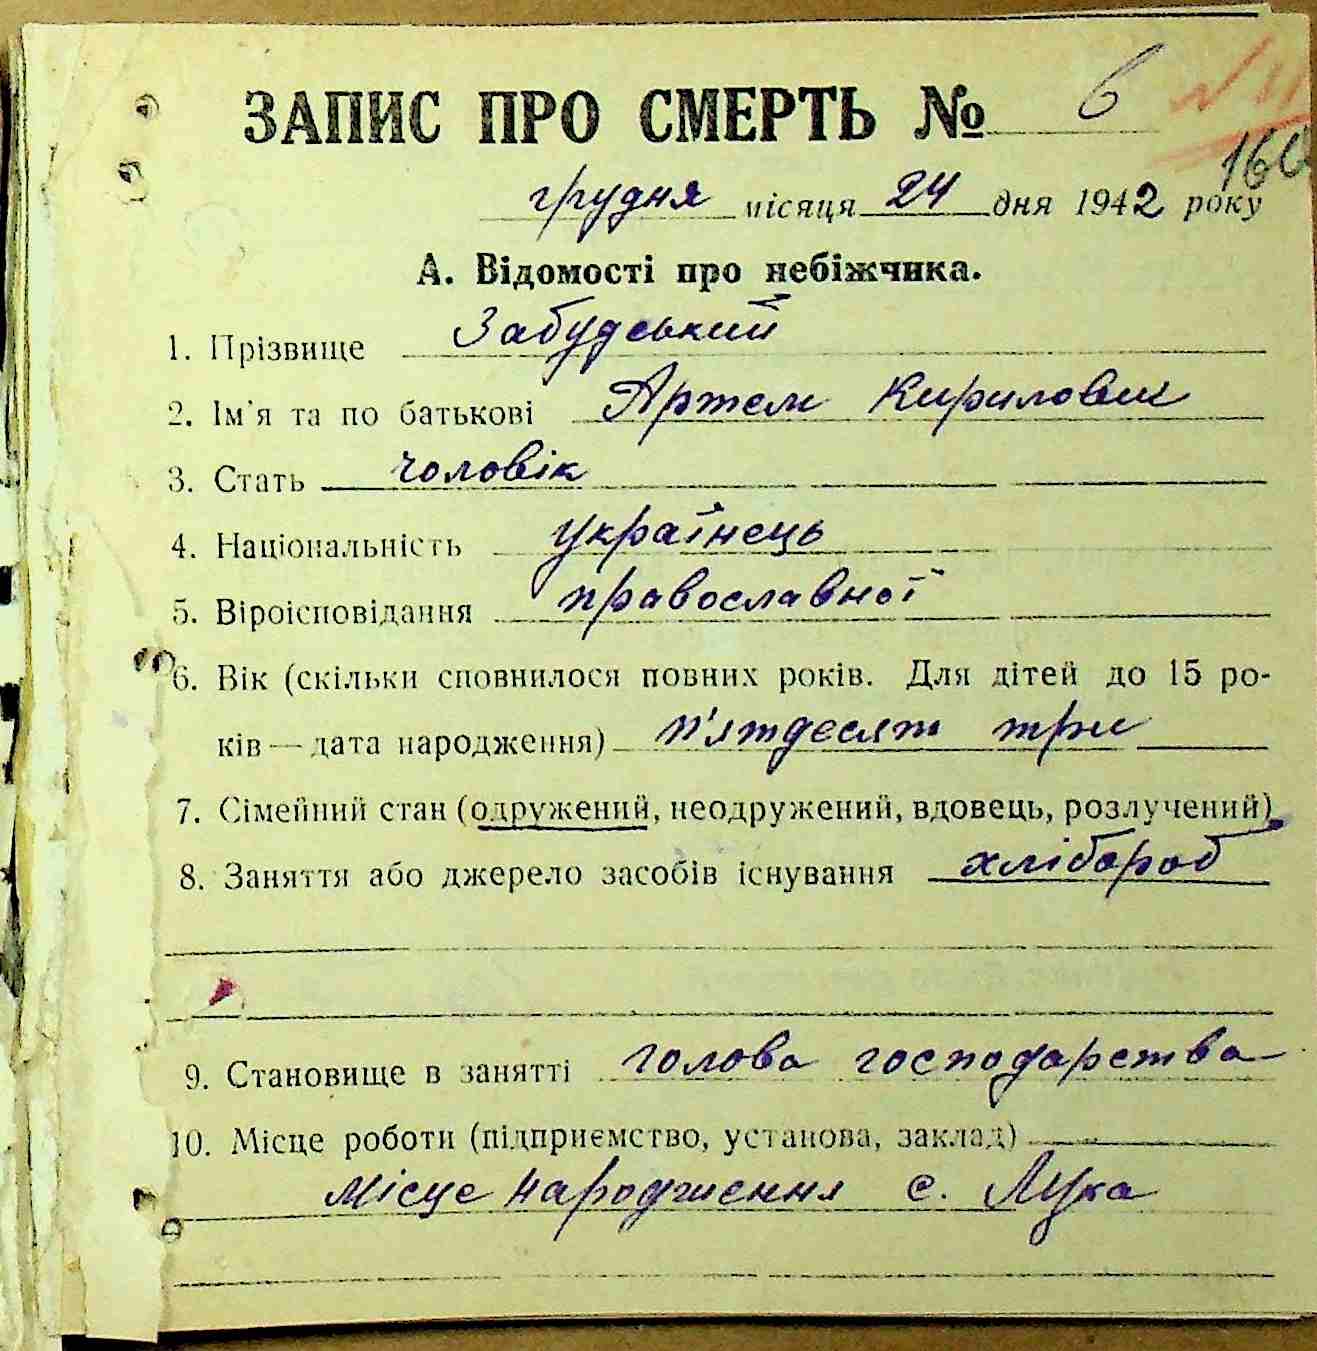 ЗАПИС ПРО СМЕРТЬ № 6
№ 11
160
грудня місяця 24 дня 1942 року
А. Відомості про небіжчика.
1. Прізвище Забудський
2. Ім'я та по батькові Артем Кирилович
3. Стать чоловік
4. Національність українець
5. Віроісповідання православної
6. Вік (скільки сповнилося повних років. Для дітей до 15 ро-
ків — дата народження) п'ятдесят три
7. Сімейний стан (одружений, неодружений, вдовець, розлучений)
8. Заняття або джерело засобів існування хлібороб
9. Становище в занятті голова господарства
10. Місце роботи (підприємство, установа, заклад)
Місце народження с. Лука